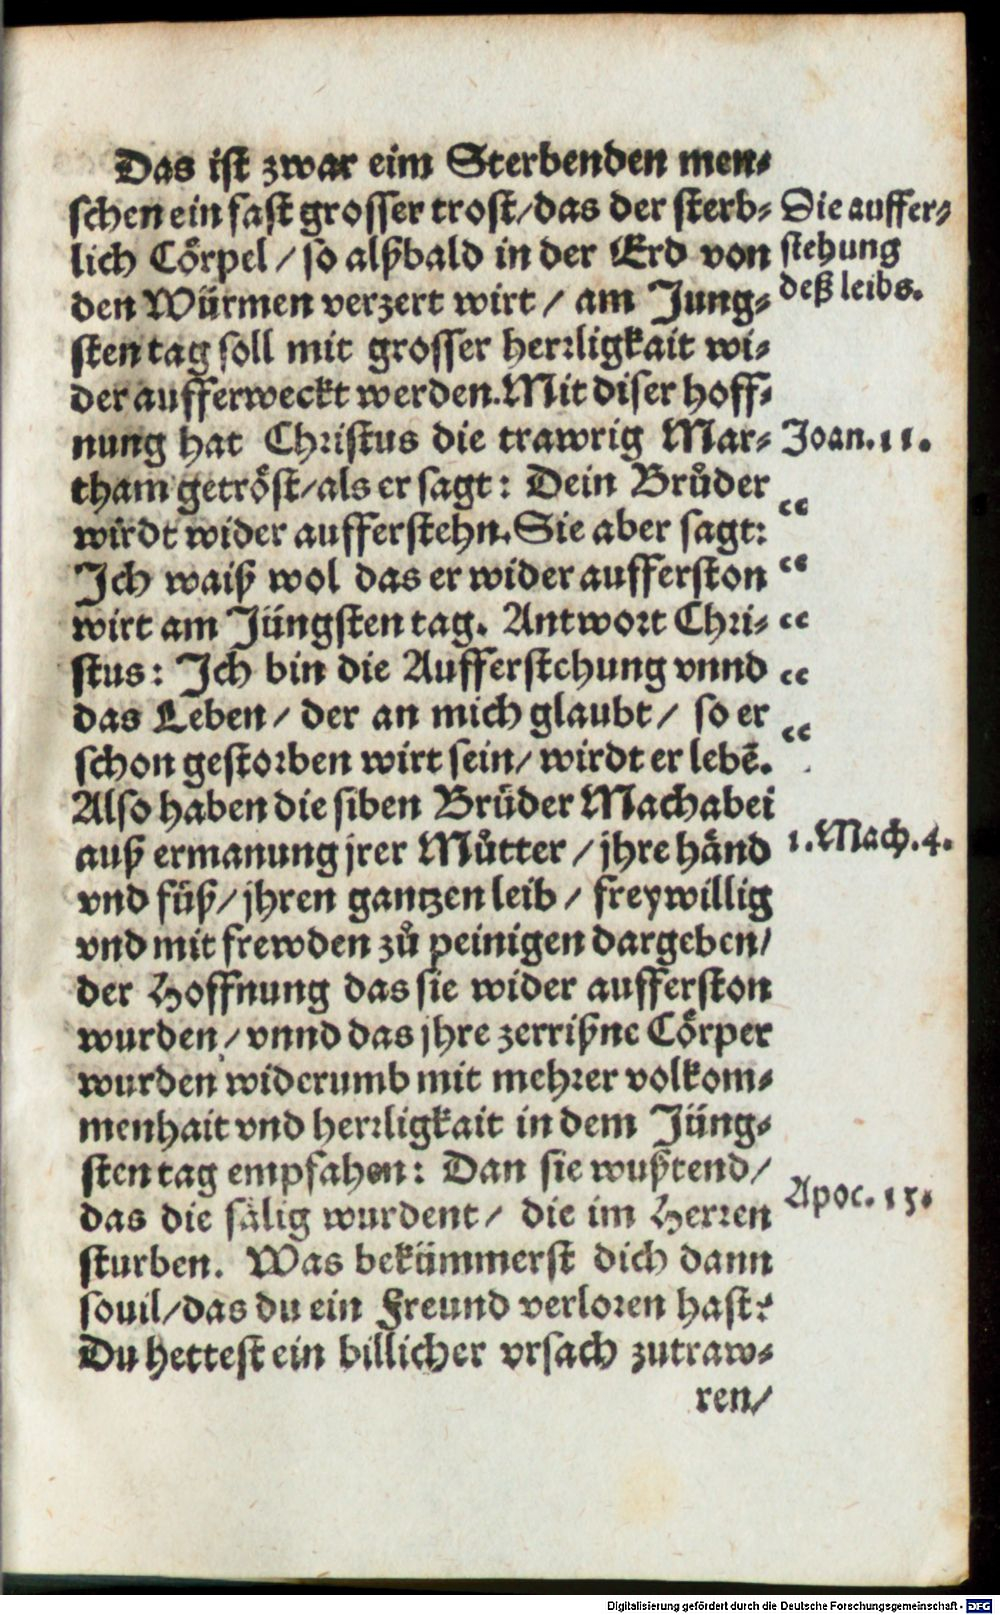 Das ist zwar eim Sterbenden men⸗
schen ein fast grosser trost/das der sterb⸗
lich Coͤrpel / so alßbald in der Erd von
den Würmen verzert wirt / am Jung⸗
sten tag soll mit grosser herꝛligkait wi⸗
der aufferweckt werden. Mit diser hoff⸗
nung hat Chꝛistus die trawrig Mar⸗
tham getroͤst/als er sagt: Dein Bruͦder
wirdt wider aufferstehn. Sie aber sagt:
Ich waiß wol das er wider aufferston
wirt am Jüngsten tag. Antwoꝛt Chꝛi⸗
stus: Ich bin die Aufferstehung vnnd
das Leben / der an mich glaubt / so er
schon gestoꝛben wirt sein/ wirdt er lebē.
Also haben die siben Brüder Machabei
auß ermanung jrer Muͦtter / jhre haͤnd
vnd füß/ jhren gantzen leib / freywillig
vnd mit frewden zuͦ peinigen dargeben/
der Hoffnung das sie wider aufferston
wurden / vnnd das jhre zerrißne Coͤrper
wurden widerumb mit mehꝛer volkom⸗
menhait vnd herꝛligkait in dem Jüng⸗
sten tag empfahen: Dan sie wußtend/
das die saͤlig wurdent / die im Herꝛen
sturben. Was bekümmerst dich dann
souil/das du ein Freund verloꝛen hast?
Du hettest ein billicher vrsach zutraw⸗
ren/
Die auffer⸗
stehung
deß leibs.
Joan. 11.
“
“
“
“
“
1. Mach. 4.
Apoc. 15.
Digitalisierung gefördert durch die Deutsche Forschungsgemeinschaft - DFG